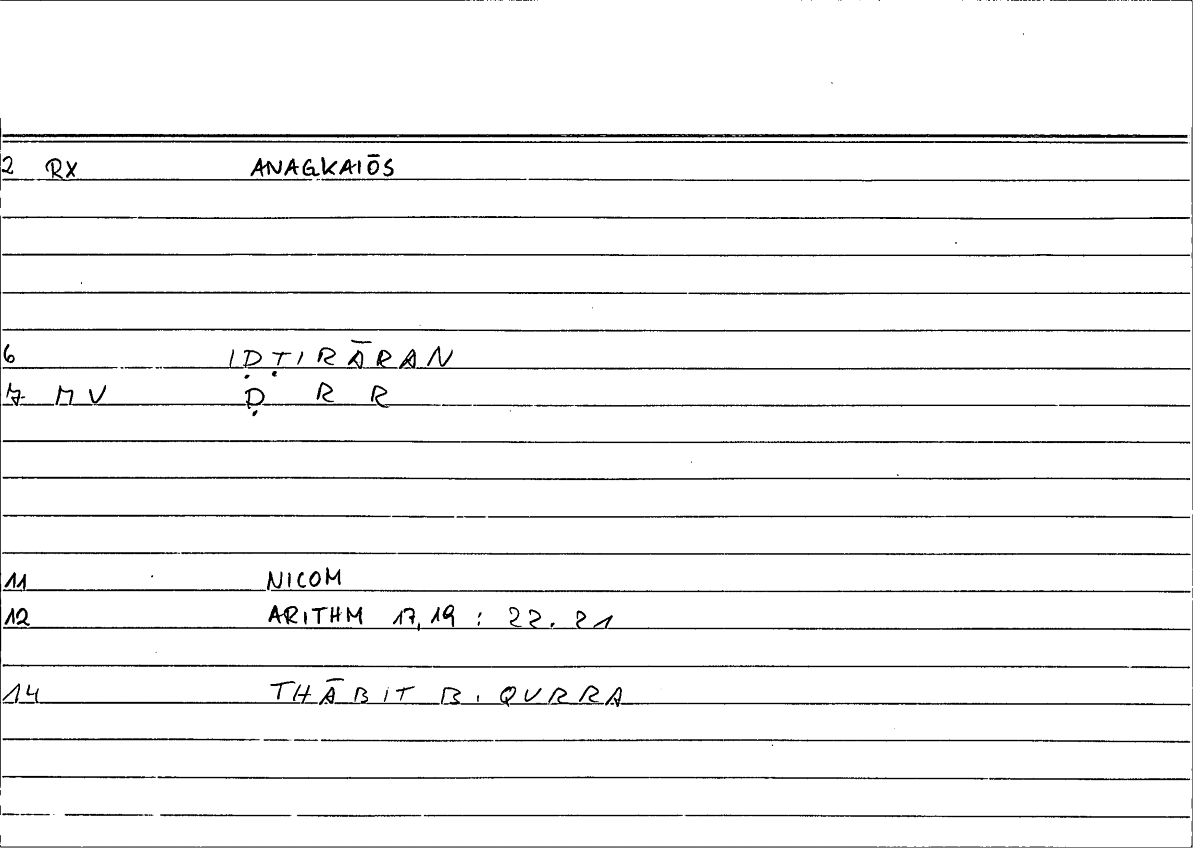 2 RX ANAGKAIŌS
6 IḌṬIRĀRAN
7 MV Ḍ R R
11 NICOM
12 ARITHM 17,19 : 22.21
14 THĀBIT B. QURRA